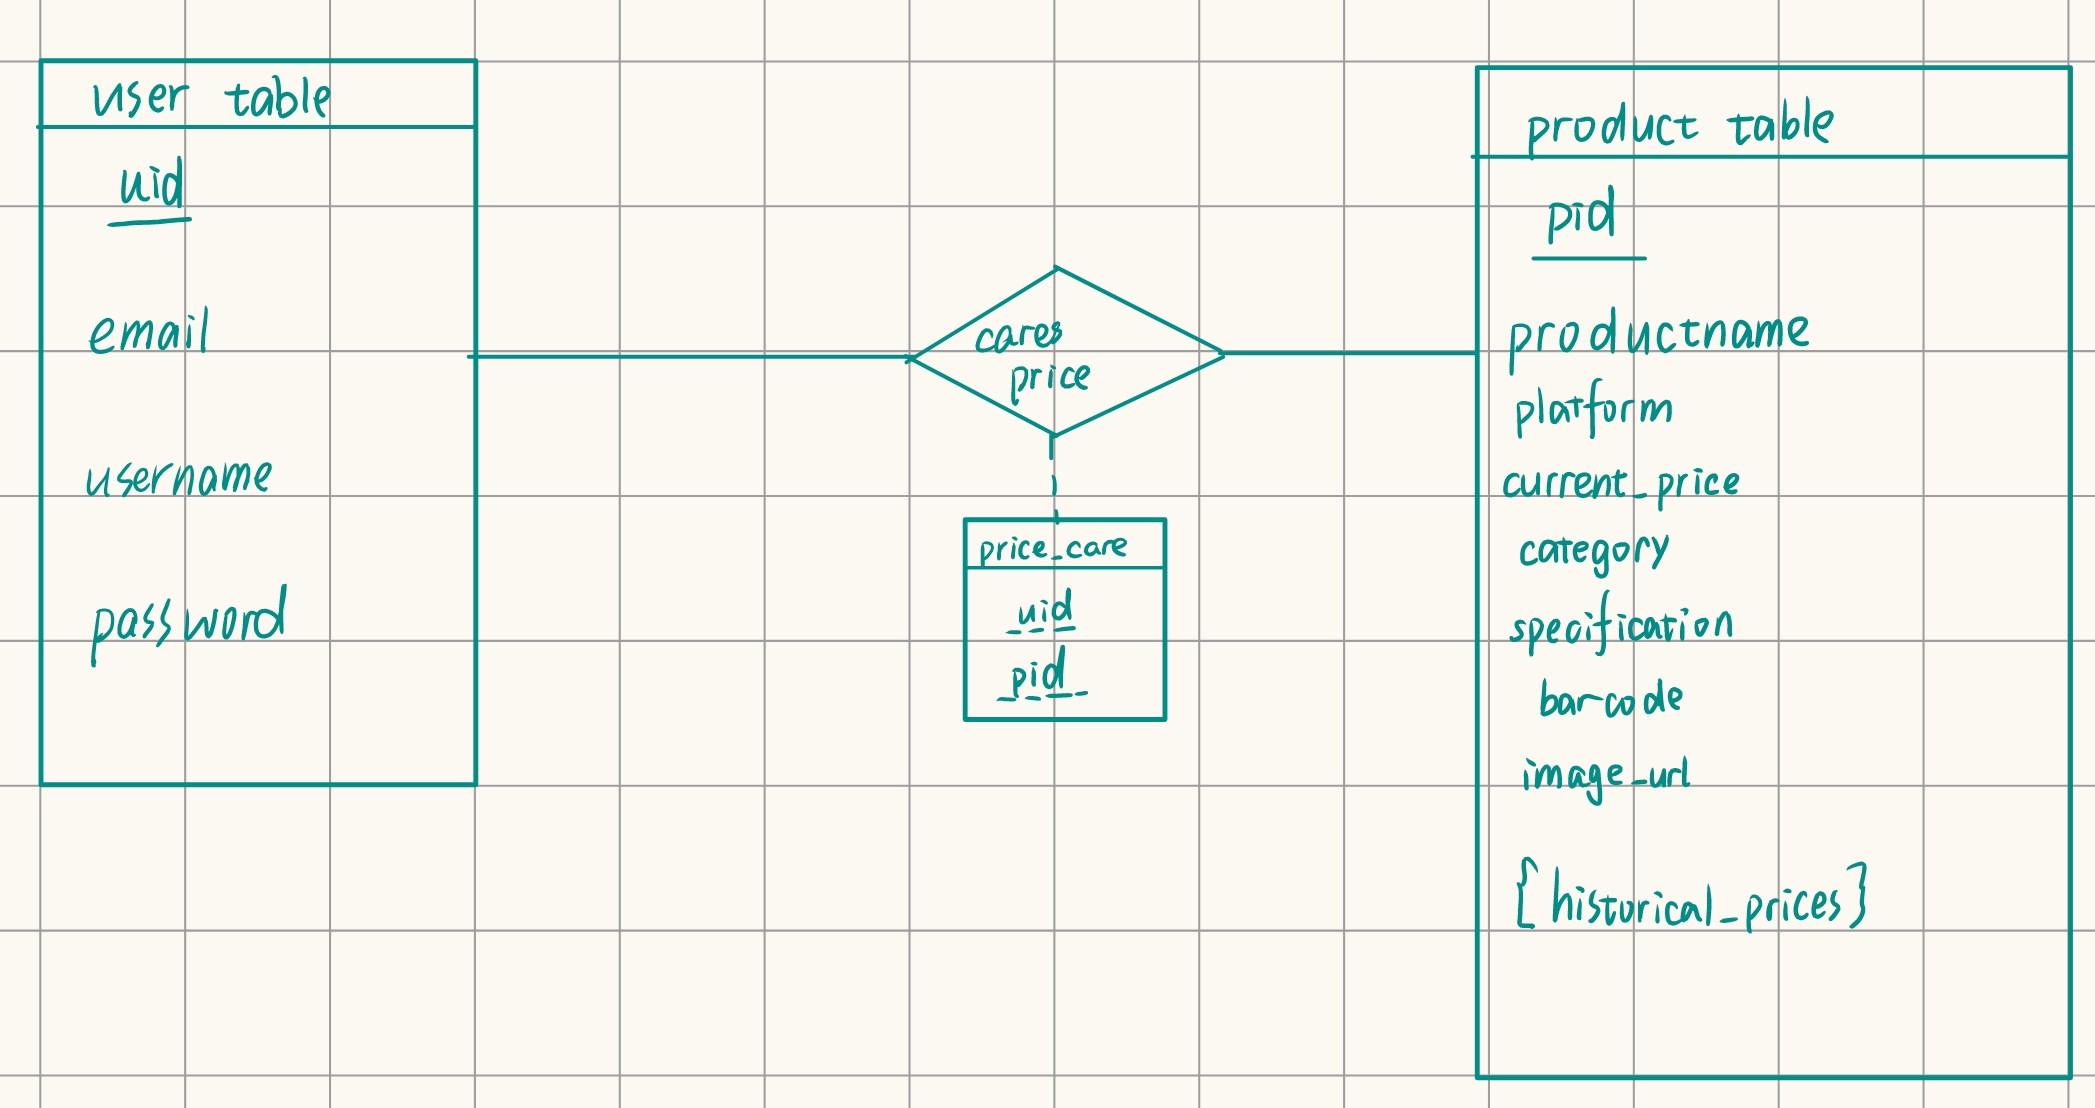 user table
uid
email
username
password
cares
price
price_care
uid
pid
product table
pid
productname
platform
current_price
category
specification
barcode
image_url
{historical_prices}